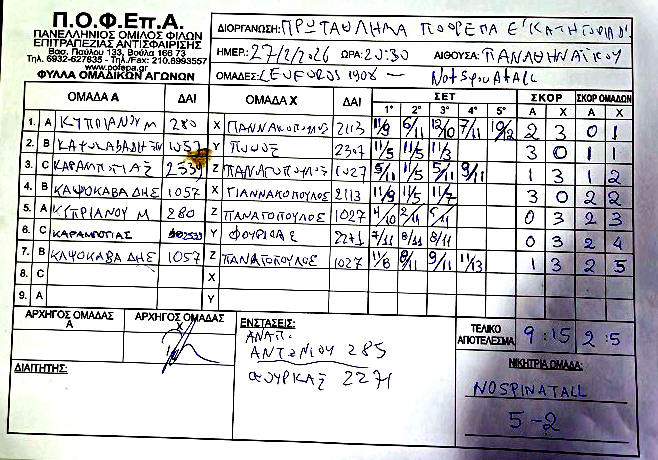 Π.Ο.Φ.Επ.Α.
ΠΑΝΕΛΛΗΝΙΟΣ ΟΜΙΛΟΣ ΦΙΛΩΝ
ΕΠΙΤΡΑΠΕΖΙΑΣ ΑΝΤΙΣΦΑΙΡΙΣΗΣ
Βασ. Παύλου 133, Βούλα 166 73
Τηλ. 6932-627835 - Τηλ./Fax: 210.8993557
www.pofepa.gr
ΦΥΛΛΑ ΟΜΑΔΙΚΩΝ ΑΓΩΝΩΝ
ΔΙΟΡΓΑΝΩΣΗ: ΠΡΩΤΑΘΛΗΜΑ ΠΟΦΕΠΑ Ε' ΚΑΤΗΓΟΡΙΑ
ΗΜΕΡ: 27/2/2026 ΩΡΑ: 20:30 ΑΙΘΟΥΣΑ: ΠΑΝΑΘΗΝΑΪΚΟΥ
ΟΜΑΔΕΣ: LEVEUROS 1906 — NotSpinatall
ΟΜΑΔΑ Α ΔΑΙ ΟΜΑΔΑ Χ ΔΑΙ ΣΕΤ ΣΚΟΡ ΣΚΟΡ ΟΜΑΔΩΝ
1° 2° 3° 4° 5° Α Χ Α Χ
1. Α ΚΥΠΡΙΑΝΟΥ Μ 280 Χ ΓΙΑΝΝΑΚΟΠΟΥΛΟΣ 2113 11/9 6/11 12/10 7/11 10/12 2 3 0 1
2. Β 1057 Υ 2307 11/5 11/5 11/3 3 0 1 1
3. C ΚΑΡΑΜΠΟΓΙΑΣ 2539 Ζ ΠΑΝΑΓΟΠΟΥΛΟΣ 1027 5/11 11/5 5/11 9/11 1 3 1 2
4. Β ΚΑΨΟΚΑΒΑΔΗΣ 1057 Χ ΓΙΑΝΝΑΚΟΠΟΥΛΟΣ 2113 11/9 11/5 11/7 3 0 2 2
5. Α ΚΥΠΡΙΑΝΟΥ Μ 280 Ζ ΠΑΝΑΓΟΠΟΥΛΟΣ 1027 2/11 0 3 2 3
6. C ΚΑΡΑΜΠΟΓΙΑΣ 2539 Υ ΦΟΥΡΙΚΑΣ 2271 7/11 8/11 8/11 0 3 2 4
7. Β ΚΑΨΟΚΑΒΑΔΗΣ 1057 Ζ ΠΑΝΑΓΟΠΟΥΛΟΣ 1027 11/8 8/11 9/11 11/13 1 3 2 5
8. C Χ
9. Α Υ
ΑΡΧΗΓΟΣ ΟΜΑΔΑΣ Α ΑΡΧΗΓΟΣ ΟΜΑΔΑΣ Χ
ΔΙΑΙΤΗΤΗΣ:
ΕΝΣΤΑΣΕΙΣ:
ΑΝΑΠ:
ΑΝΤΩΝΙΟΥ 285
ΦΟΥΡΙΚΑΣ 2271
ΤΕΛΙΚΟ ΑΠΟΤΕΛΕΣΜΑ 9:15 2:5
ΝΙΚΗΤΡΙΑ ΟΜΑΔΑ:
NOSPINATALL
5-2